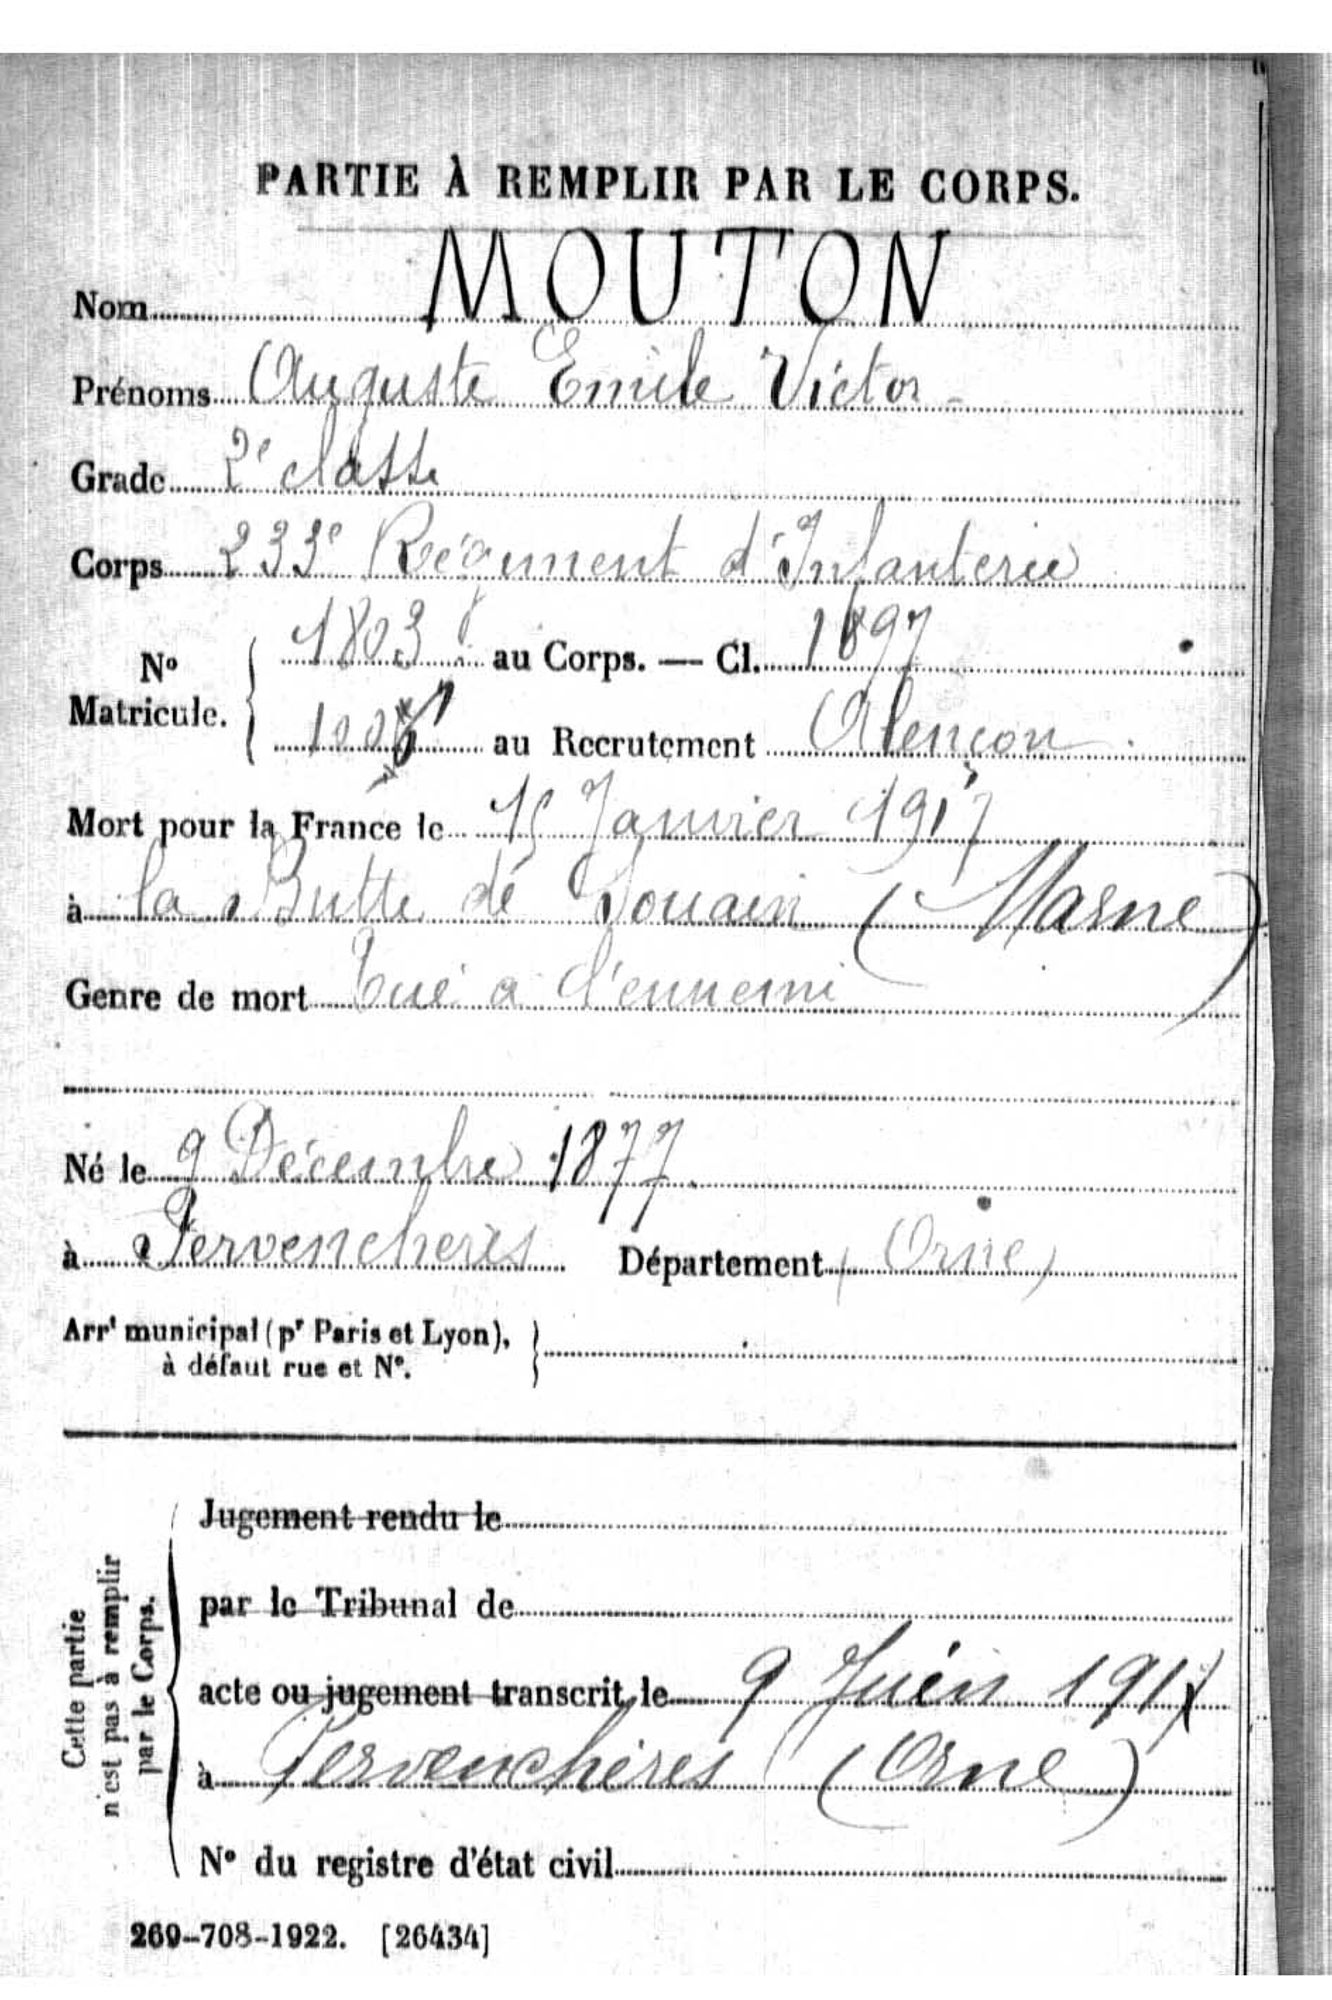 PARTIE À REMPLIR PAR LE CORPS.
Nom MOUTON
Prénoms Auguste Emile Victor
Grade 2e classe
Corps 233e Régiment d'Infanterie
No Matricule. 1803 au Corps. — Cl. 1897
au Recrutement Alençon
Mort pour la France le 15 Janvier 1917
à la Butte de Souain (Marne)
Genre de mort Tué à l'ennemi
Né le 9 Décembre 1877
à Pervenchères Département (Orne)
Arrt municipal (pr Paris et Lyon),
à défaut rue et No.
Cette partie
n'est pas à remplir
par le Corps.
Jugement rendu le
par le Tribunal de
acte ou jugement transcrit le 9 Juin 1917
à Pervenchères (Orne)
No du registre d'état civil
269-708-1922. [26434]